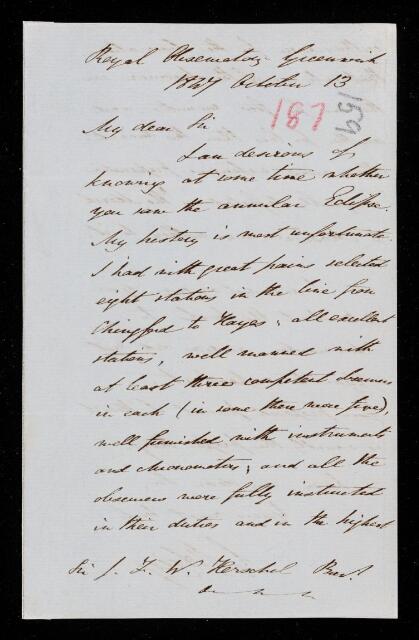 Royal Observatory Greenwich
1847 October 13
187
159
My dear Sir
I am desirous of
knowing at some time whether
you saw the annular Eclipse.
My history is most unfortunate.
I had with great pains selected
eight stations in the line from
Chingford to Hayes, all excellent
stations, well manned with
at least three competent observers
in each (in some there were five),
well furnished with instruments
and chronometers; and all the
observers were fully instructed
in their duties and in the highest
Sir J. F. W. Herschel Bart